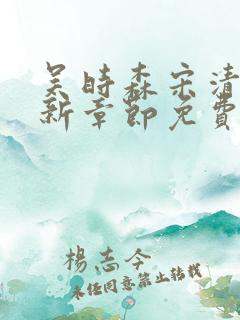 吴时森宋清
新章节免费
杨志今
未经同意禁止转载